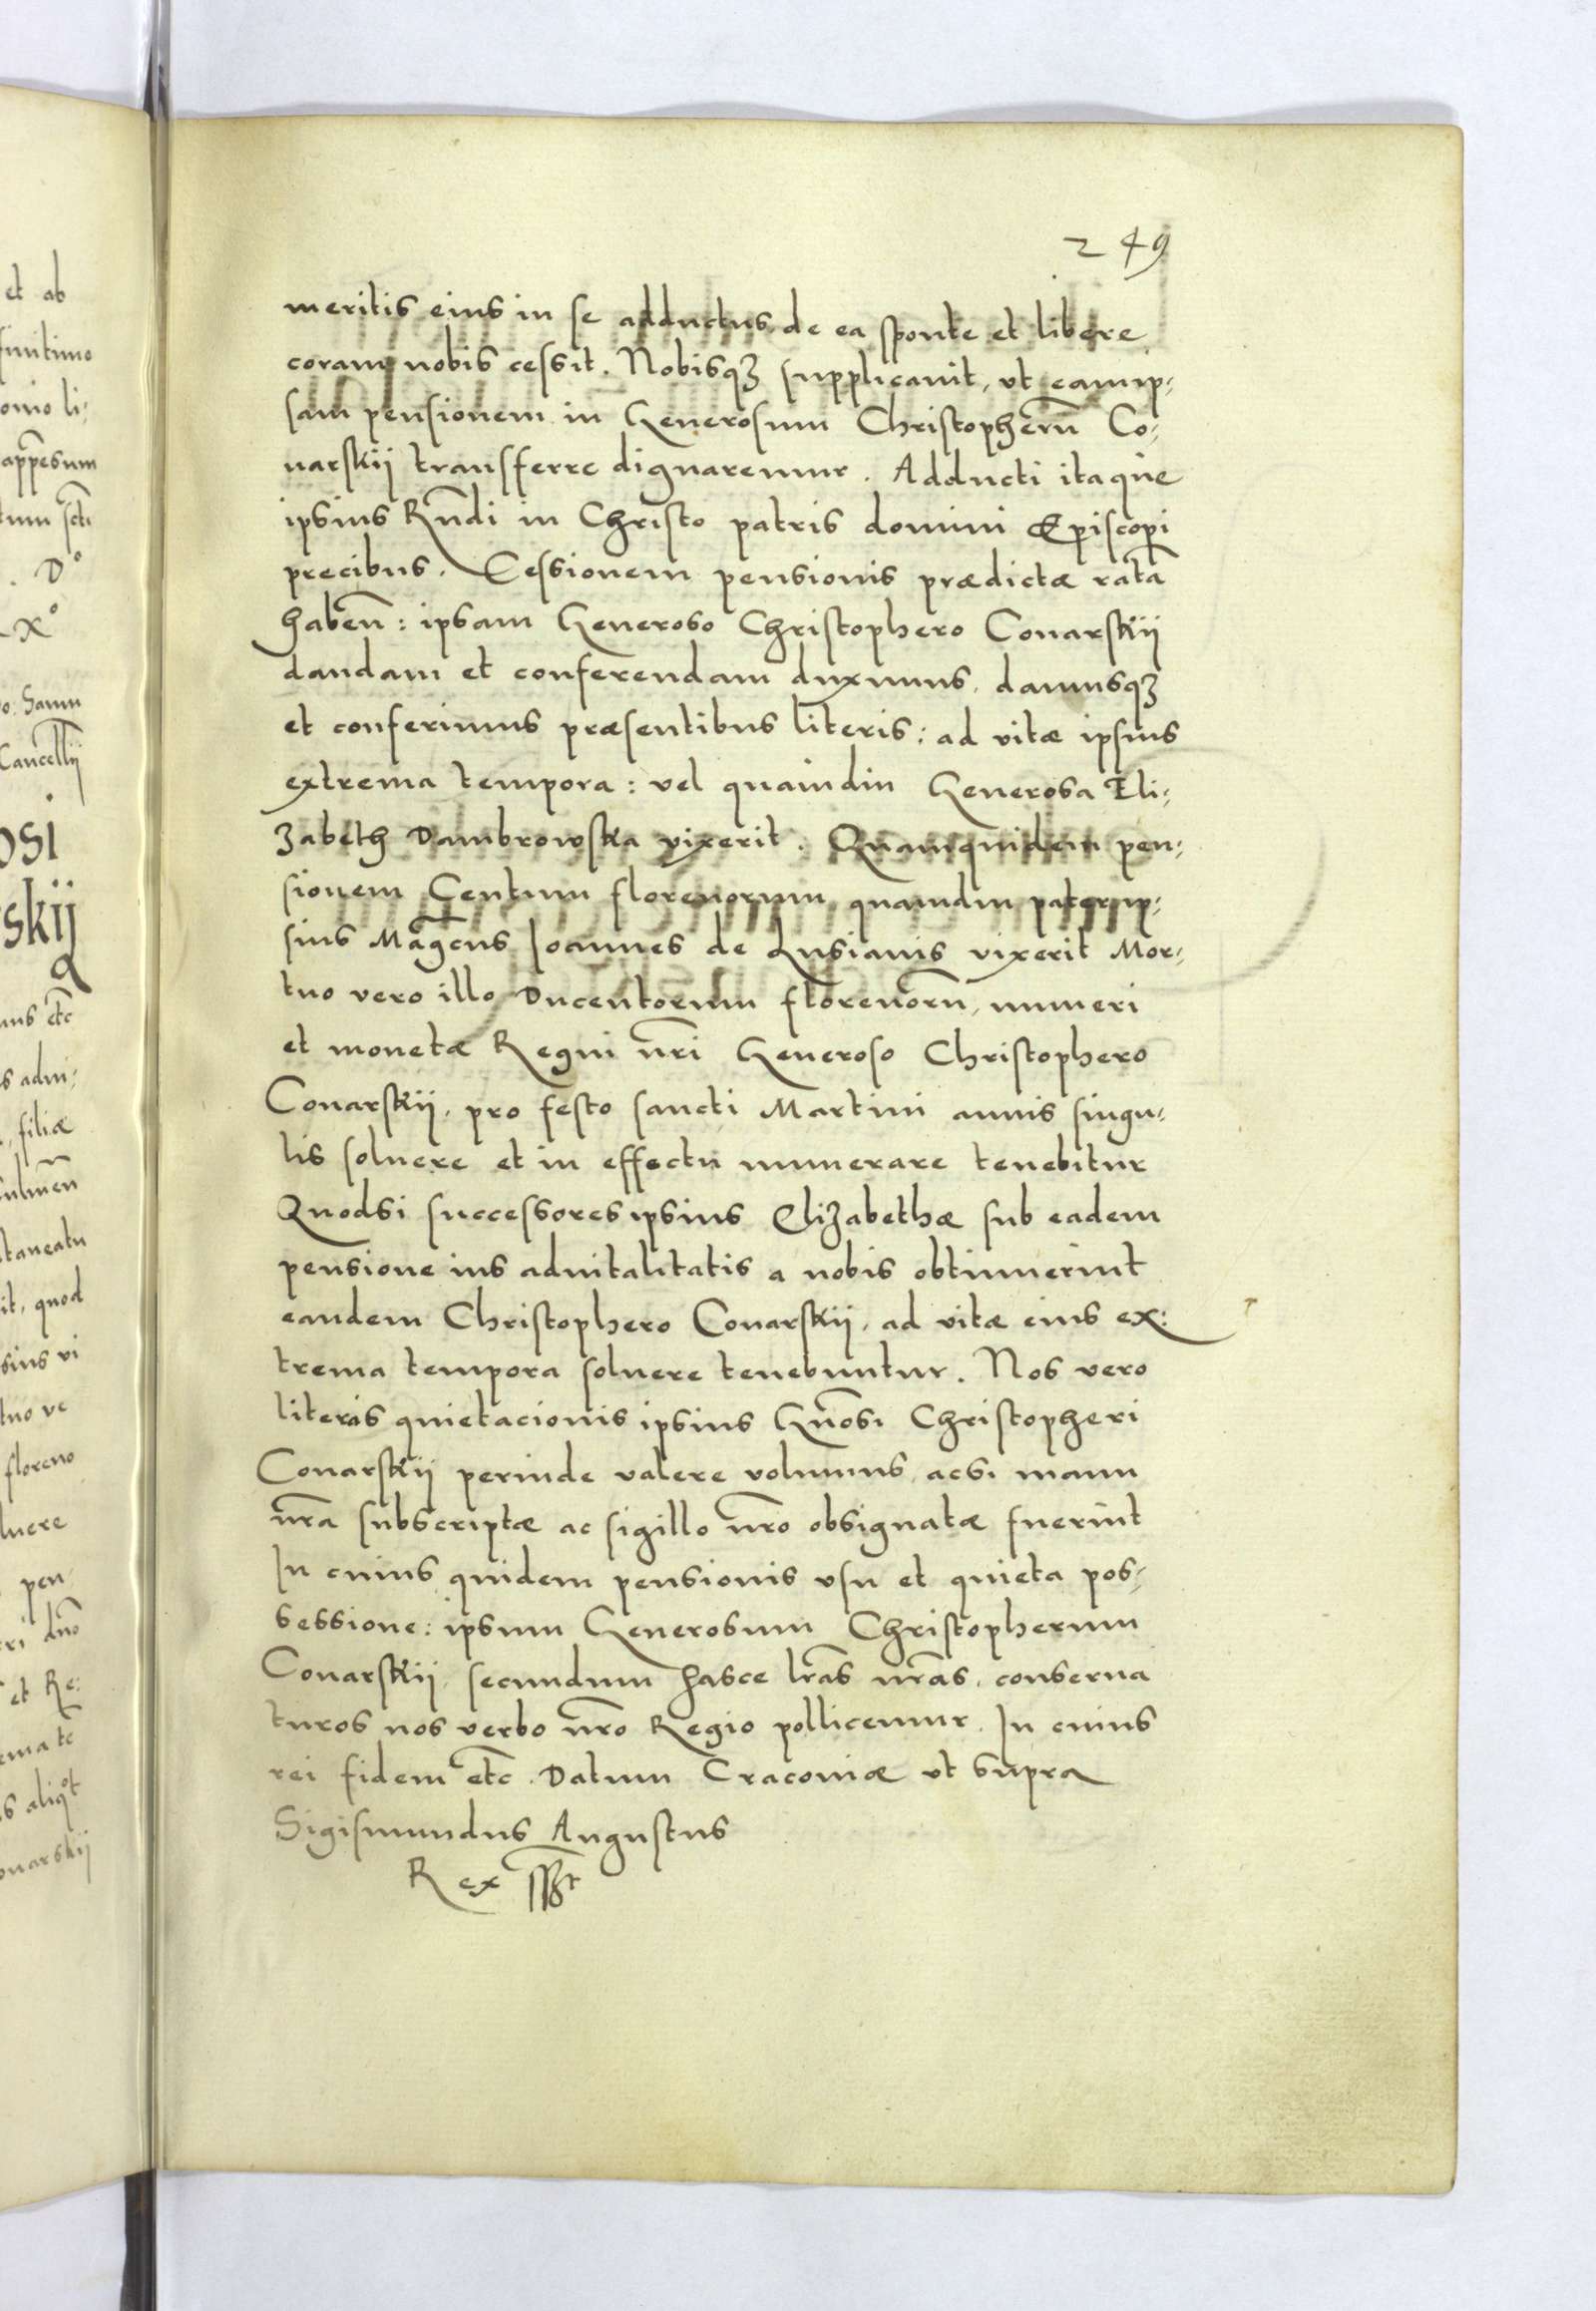 et ab
finitimo
onio li:
appesum
tum scti
. D°
X°
o: Samu
Cancellij
OSI
skij
mus etc
s adui:
, filiæ
culmen
taneatu
it, quod
sius vi
tuo ve
floreno
luere
pen-
ri dno
et Re:
ema te
s aliqot
onarskij
249
meritis eius in se adductus, de ea sponte et libere
coram nobis cessit. Nobisqʒ supplicauit, vt eamip-
sam pensionem in Generosum Christopherũ Co-
narskij transferre dignaremur. Adducti itaque
ipsius Rñdi in Christo patris domini Episcopi
precibus. Cessionem pensionis prædictæ ratã
habeñ: ipsam Generoso Christophero Conarskij
dandam et conferendam duximus, damusqʒ
et conferimus præsentibus literis: ad vitæ ipsius
extrema tempora: vel quamdiu Generosa Eli-
zabeth Dambrowska vixerit. Quamquidem pen-
sionem Centum florenorum, quamdiu paterip-
sius Magcus Joannes de Lusianis vixerit Mor-
tuo vero illo Ducentorum florenorũ, numeri
et monetæ Regni nri Generoso Christophero
Conarskij, pro festo sancti Martini annis singu-
lis soluere et in effectu numerare tenebitur
Quodsi successores ipsius Elizabethæ sub eadem
pensione ius aduitalitatis a nobis obtinuerint
eandem Christophero Conarskij, ad vitæ eius ex:
trema tempora soluere tenebuntur. Nos vero
literas quietacionis ipsius Gnosi Christopheri
Conarskij perinde valere volumus, acsi manu
nra subscriptæ ac sigillo nro obsignatæ fuerint
In cuius quidem pensionis vsu et quieta pos-
sessione: ipsum Generosum Christopherum
Conarskij, secundum hasce lras nras, conserua
turos nos verbo nro Regio pollicemur. In cuius
rei fidem etc. Datum Cracouiæ vt supra
Sigismundus Augustus
Rex sszt